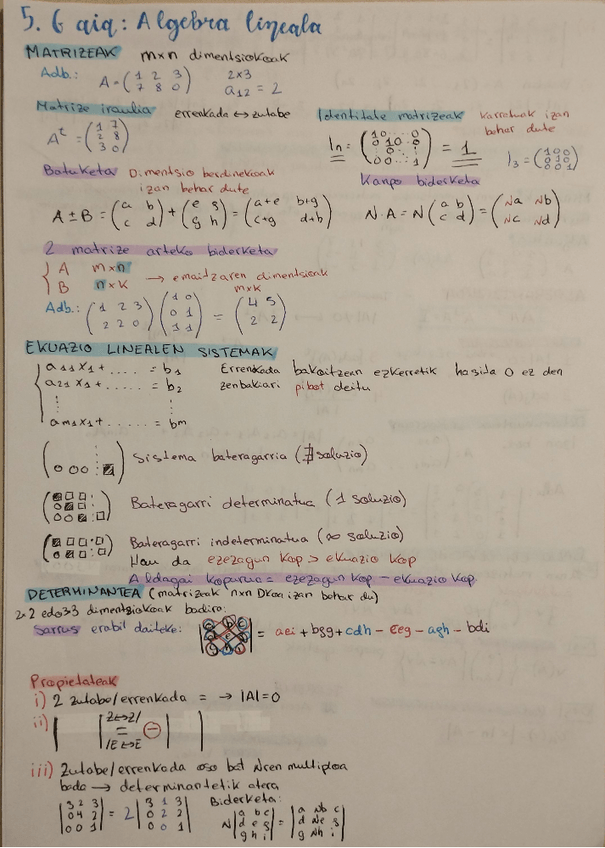 5. 6 gaia: Algebra lineala
MATRIZEAK m×n dimentsiokoak
Adb.: A = (1 2 3 / 7 8 0) 2x3 a₁₂ = 2
Matrize iraulia errenkada ↔ zutabe
Aᵗ = (1 7 / 2 8 / 3 0)
Identitate matrizeak karratuak izan behar dute
In = (1 0 ... 0 / 0 1 0 .. 0 / 0 : / 0 0 ... 1) = 1 I₃ = (1 0 0 / 0 1 0 / 0 0 1)
Batuketa Dimentsio berdinekoak izan behar dute
A ± B = (a b / c d) + (e g / g h) = (a+e b+g / c+g d+b)
Kanpo biderketa
N·A = N (a b / c d) = (Na Nb / Nc Nd)
2 matrize arteko biderketa
A m×n
B n×k → emaitzaren dimentsioak m×k
Adb.: (1 2 3 / 2 2 0) (1 0 / 0 1 / 1 1) = (4 5 / 2 2)
EKUAZIO LINEALEN SISTEMAK
a₁₁x₁ + ...... = b₁ Errenkada bakoitzean ezkerretik hasita 0 ez den
a₂₁x₁ + ...... = b₂ zenbakiari pibot deitu
am₁x₁ + ...... = bm
(0 0 0) Sistema bateragarria (∄ soluzio)
Bateragarri determinatua (1 soluzio)
Bateragarri indeterminatua (∞ soluzio)
Hau da ezezagun kop > ekuazio kop
Aldagai kopurua = ezezagun kop − ekuazio kop.
DETERMINANTEA (matrizeak n×n Dkoa izan behar du)
2x2 edo 3x3 dimentsiokoak badira:
Sarrus erabil daiteke: = aei + bgg + cdh − ceg − agh − bdi
Propietateak
i) 2 zutabe/errenkada = → |A| = 0
ii) | |Z↔Z/ = /E↔E ⊖ | |
iii) Zutabe/errenkada oso bat Nren multiploa
bada → determinantetik atera
|3 2 3 / 0 4 2 / 0 0 1| = 2 |3 1 3 / 0 2 2 / 0 0 1|
Biderketa:
N |a b c / d e g / g h i| = |a Nb c / d Ne g / g Nh i|